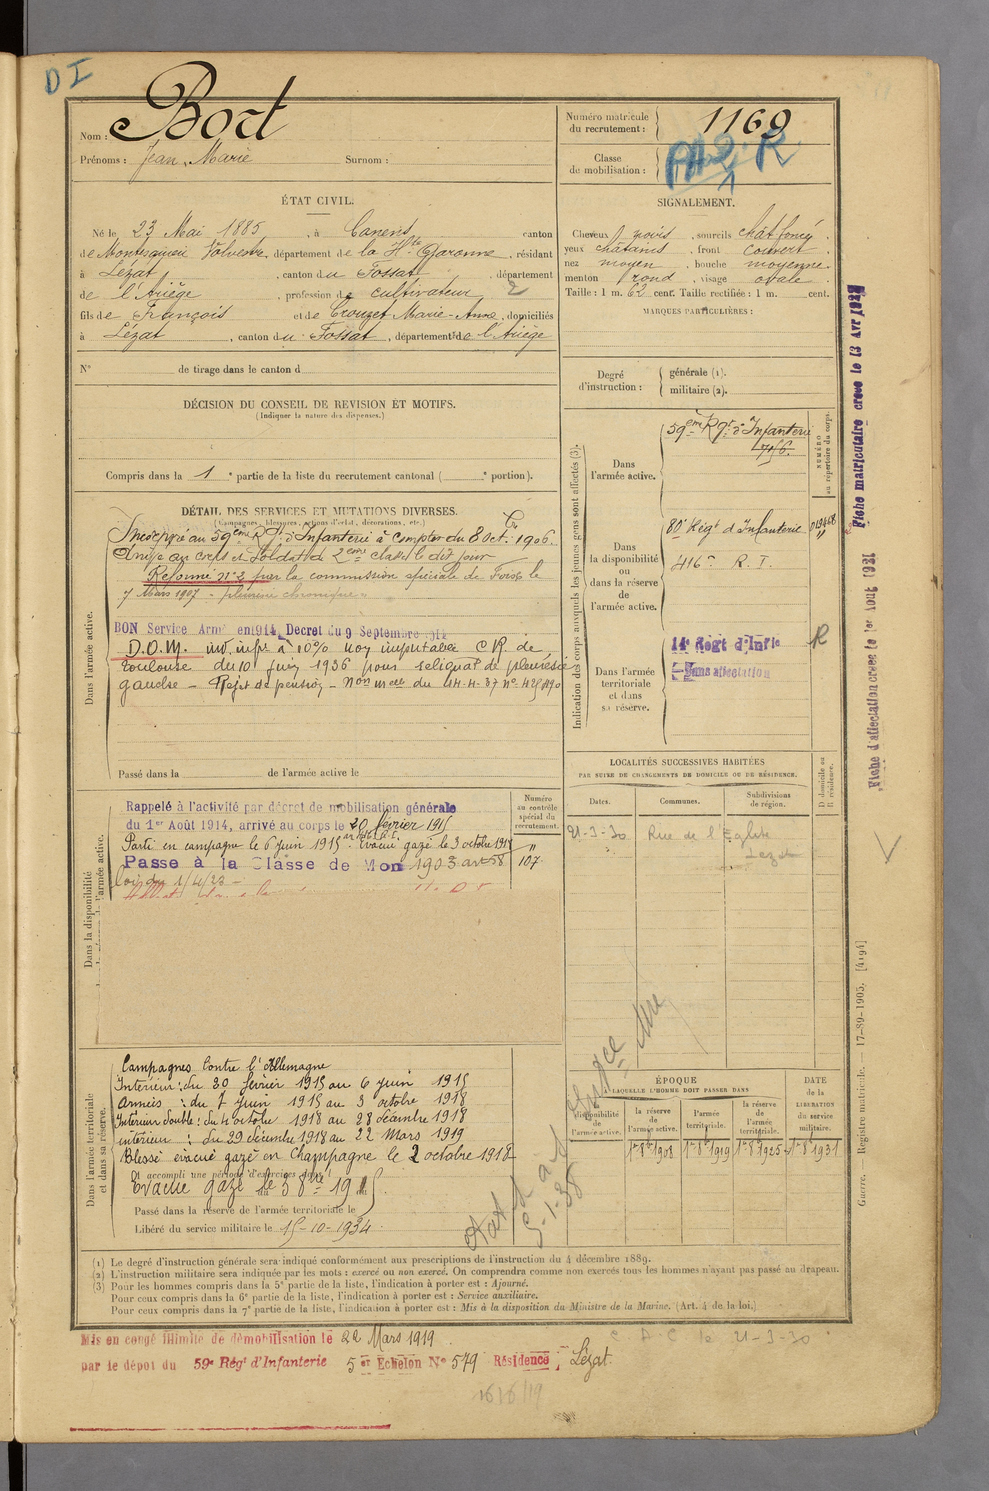 D I
Nom : Bort
Prénoms : Jean, Marie Surnom :
Numéro matricule du recrutement : 1169
Classe de mobilisation :
ÉTAT CIVIL.
Né le 23 Mai 1885, à Canens, canton
de Montesquieu Volvestre, département de la Hte Garonne, résidant
à Lézat, canton du Fossat, département
de l'Ariège, profession de cultivateur
fils de François et de Crouzet Marie-Anne, domiciliés
à Lézat, canton du Fossat, département de l'Ariège
N° de tirage dans le canton d
SIGNALEMENT.
Cheveux noirs, sourcils chât foncé.
yeux châtains, front couvert.
nez moyen, bouche moyenne.
menton rond, visage ovale.
Taille : 1 m. 62 cent. Taille rectifiée : 1 m. cent.
MARQUES PARTICULIÈRES :
Degré d'instruction : générale (1).
militaire (2).
DÉCISION DU CONSEIL DE REVISION ET MOTIFS.
(Indiquer la nature des dispenses.)
Compris dans la 1e partie de la liste du recrutement cantonal ( e portion).
DÉTAIL DES SERVICES ET MUTATIONS DIVERSES.
(Campagnes, blessures, actions d'éclat, décorations, etc.)
Dans l'armée active.
Incorporé au 59ème Rgt d'Infanterie à compter du 8 Oct. 1906.
Arrivé au corps et Soldat de 2ème classe le dit jour
Réformé n° 2 par la commission spéciale de Foix le
7 Mars 1907 - pleurésie chronique
BON Service Armé en 1914, Décret du 9 Septembre 1914
D.O.M. inv. infre à 10% non imputable C.R. de
Toulouse du 10 juin 1936 pour reliquat de pleurésie
gauche - Rejet de pension -
Passé dans la de l'armée active le
Indication des corps auxquels les jeunes gens sont affectés (3).
NUMÉRO au répertoire du corps.
Dans l'armée active.
59ème Rgt d'Infanterie
Dans la disponibilité ou dans la réserve de l'armée active.
80e Régt d'Infanterie
416e R. I.
Dans l'armée territoriale et dans sa réserve.
14e Regt d'Infie
Sans affectation
R
Fiche matriculaire créée le 13 Avr
Fiche d'affectation créée le 1er Aout 1931
LOCALITÉS SUCCESSIVES HABITÉES
PAR SUITE DE CHANGEMENTS DE DOMICILE OU DE RÉSIDENCE.
Dates. Communes. Subdivisions de région. D domicile ou R résidence.
21-3-30 Rue de l'Eglise
Lezat
Dans la disponibilité
l'armée active.
Numéro au contrôle spécial du recrutement.
Rappelé à l'activité par décret de mobilisation générale
du 1er Août 1914, arrivé au corps le 20 février 1915
Parti en campagne le 6 juin 1915. Evacué gazé le 3 octobre 1918
Passe à la Classe de Mon 1903 art 58 107
loi du 1/4/23 -
Dans l'armée territoriale et dans sa réserve.
Campagnes contre l'Allemagne
Intérieur : du 20 février 1915 au 6 juin 1915
Armées : du 7 juin 1915 au 3 octobre 1918
Intérieur double : du 4 octobre 1918 au 28 décembre 1918
intérieur : du 29 décembre 1918 au 22 Mars 1919
Blessé évacué gazé en Champagne le 2 octobre 1918
A accompli une période d'exercices dans l
Evacué gazé le 3 8bre 19
Passé dans la réserve de l'armée territoriale le
Libéré du service militaire le 15-10-1934
ÉPOQUE
À LAQUELLE L'HOMME DOIT PASSER DANS
la disponibilité de l'armée active. la réserve de l'armée active. l'armée territoriale. la réserve de l'armée territoriale.
DATE de la LIBÉRATION du service militaire.
1er 8bre 1908 1er 8bre 1919 1er 8bre 1925 1er 8bre 1931
5-1-38
(1) Le degré d'instruction générale sera indiqué conformément aux prescriptions de l'instruction du 4 décembre 1889.
(2) L'instruction militaire sera indiquée par les mots : exercé ou non exercé. On comprendra comme non exercés tous les hommes n'ayant pas passé au drapeau.
(3) Pour les hommes compris dans la 5e partie de la liste, l'indication à porter est : Ajourné.
Pour ceux compris dans la 6e partie de la liste, l'indication à porter est : Service auxiliaire.
Pour ceux compris dans la 7e partie de la liste, l'indication à porter est : Mis à la disposition du Ministre de la Marine. (Art. 4 de la loi.)
Guerre. — Registre matricule. — 17-89-1905. [4194]
Mis en congé illimité de démobilisation le 22 Mars 1919
C A C le 21-3-30
par le dépôt du 59e Régt d'Infanterie 5er Echelon N° 579 Résidence ; Lézat
16/6/19